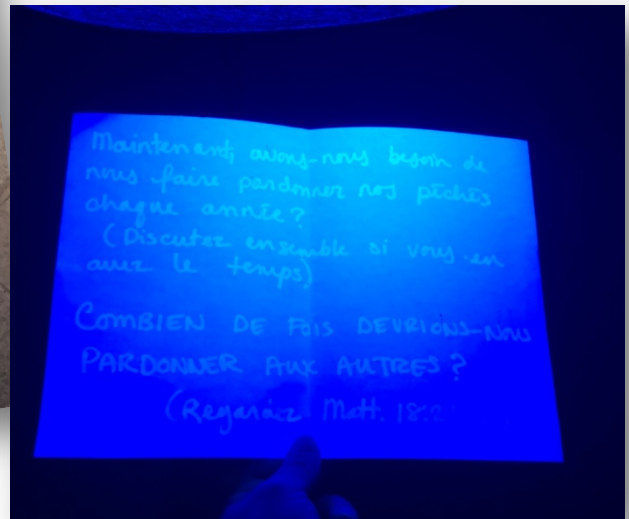 Maintenant, avons-nous besoin de
nous faire pardonner nos péchés
chaque année?
(Discutez ensemble si vous en
avez le temps)
COMBIEN DE FOIS DEVRIONS-NOUS
PARDONNER AUX AUTRES?
(Regardez Matt. 18:2